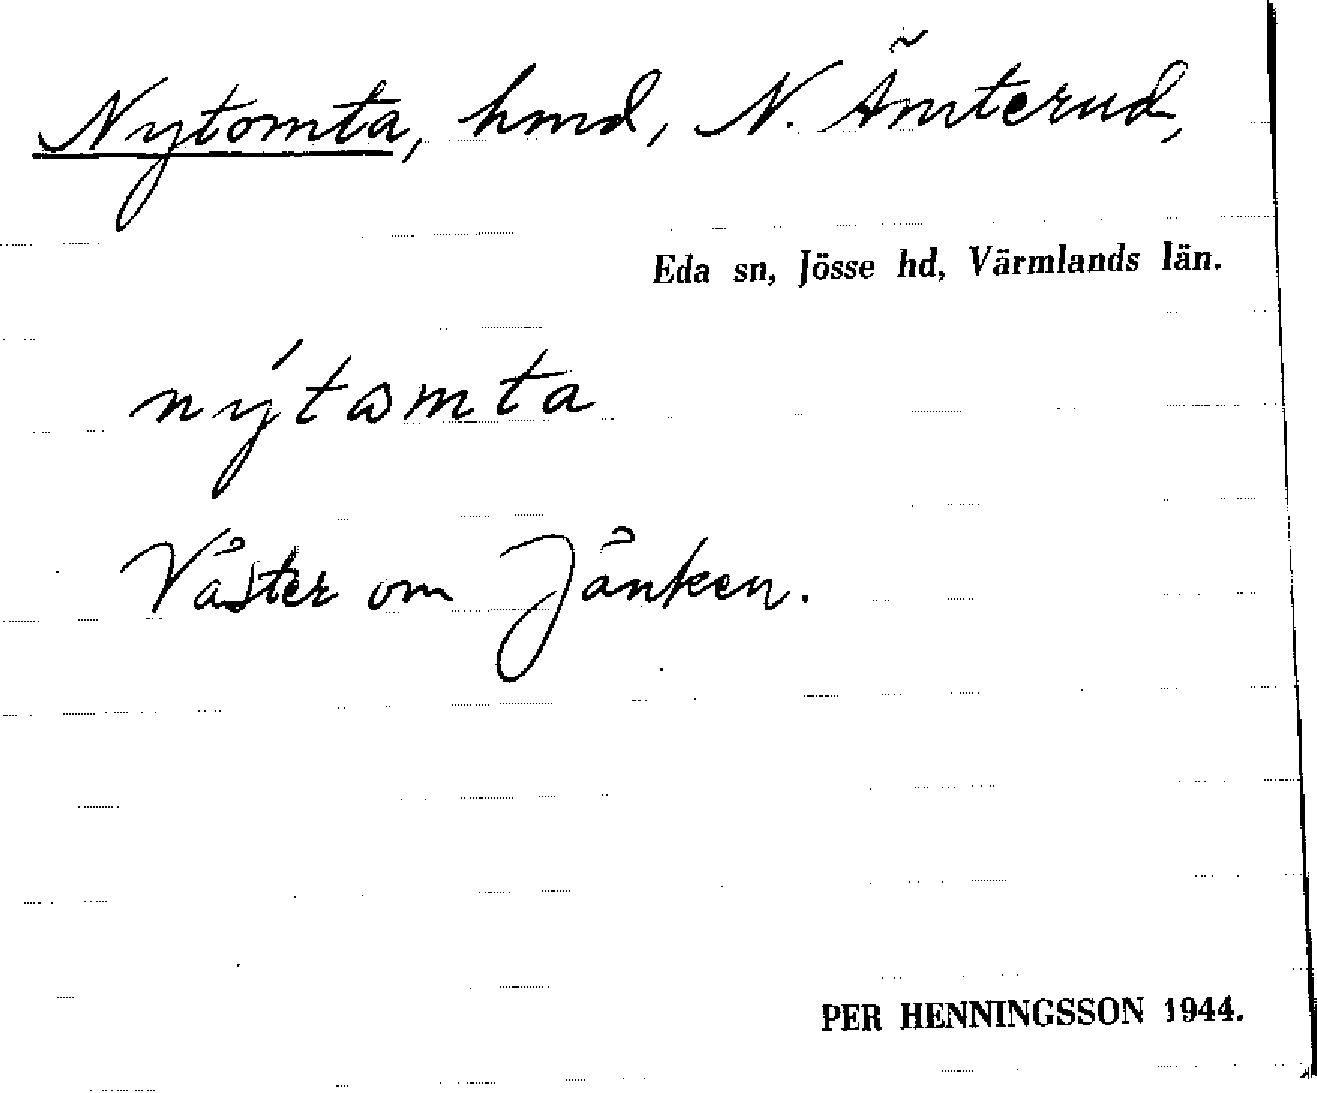 Nytomta, hmd, N. Ämterud,
Eda sn, Jösse hd, Värmlands län.
nýtamta
Väster om Jänken.
PER HENNINGSSON 1944.